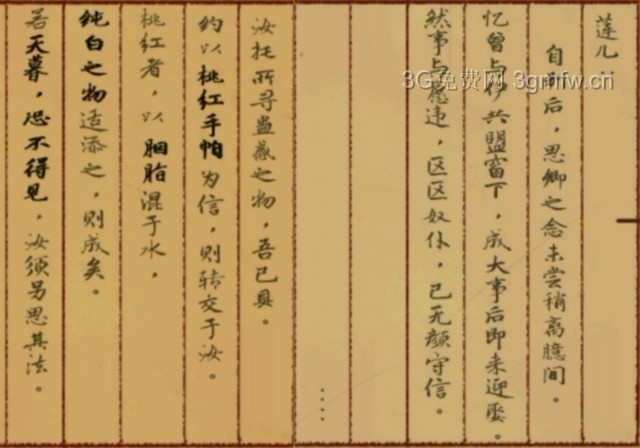 莲儿：
自别后，思卿之念未尝稍离臆间。
忆曾与伊共盟窗下，成大事后即来迎娶。
然事与愿违，区区奴仆，已无颜守信。
....
汝托所寻蛊之物，吾已具。
约以桃红手帕为信，则转交于汝。
桃红者，以胭脂混于水，
纯白之物适添之，则成矣。
若天暮，恐不得见，汝须另思其法。
3G免费网 3gmfw.cn